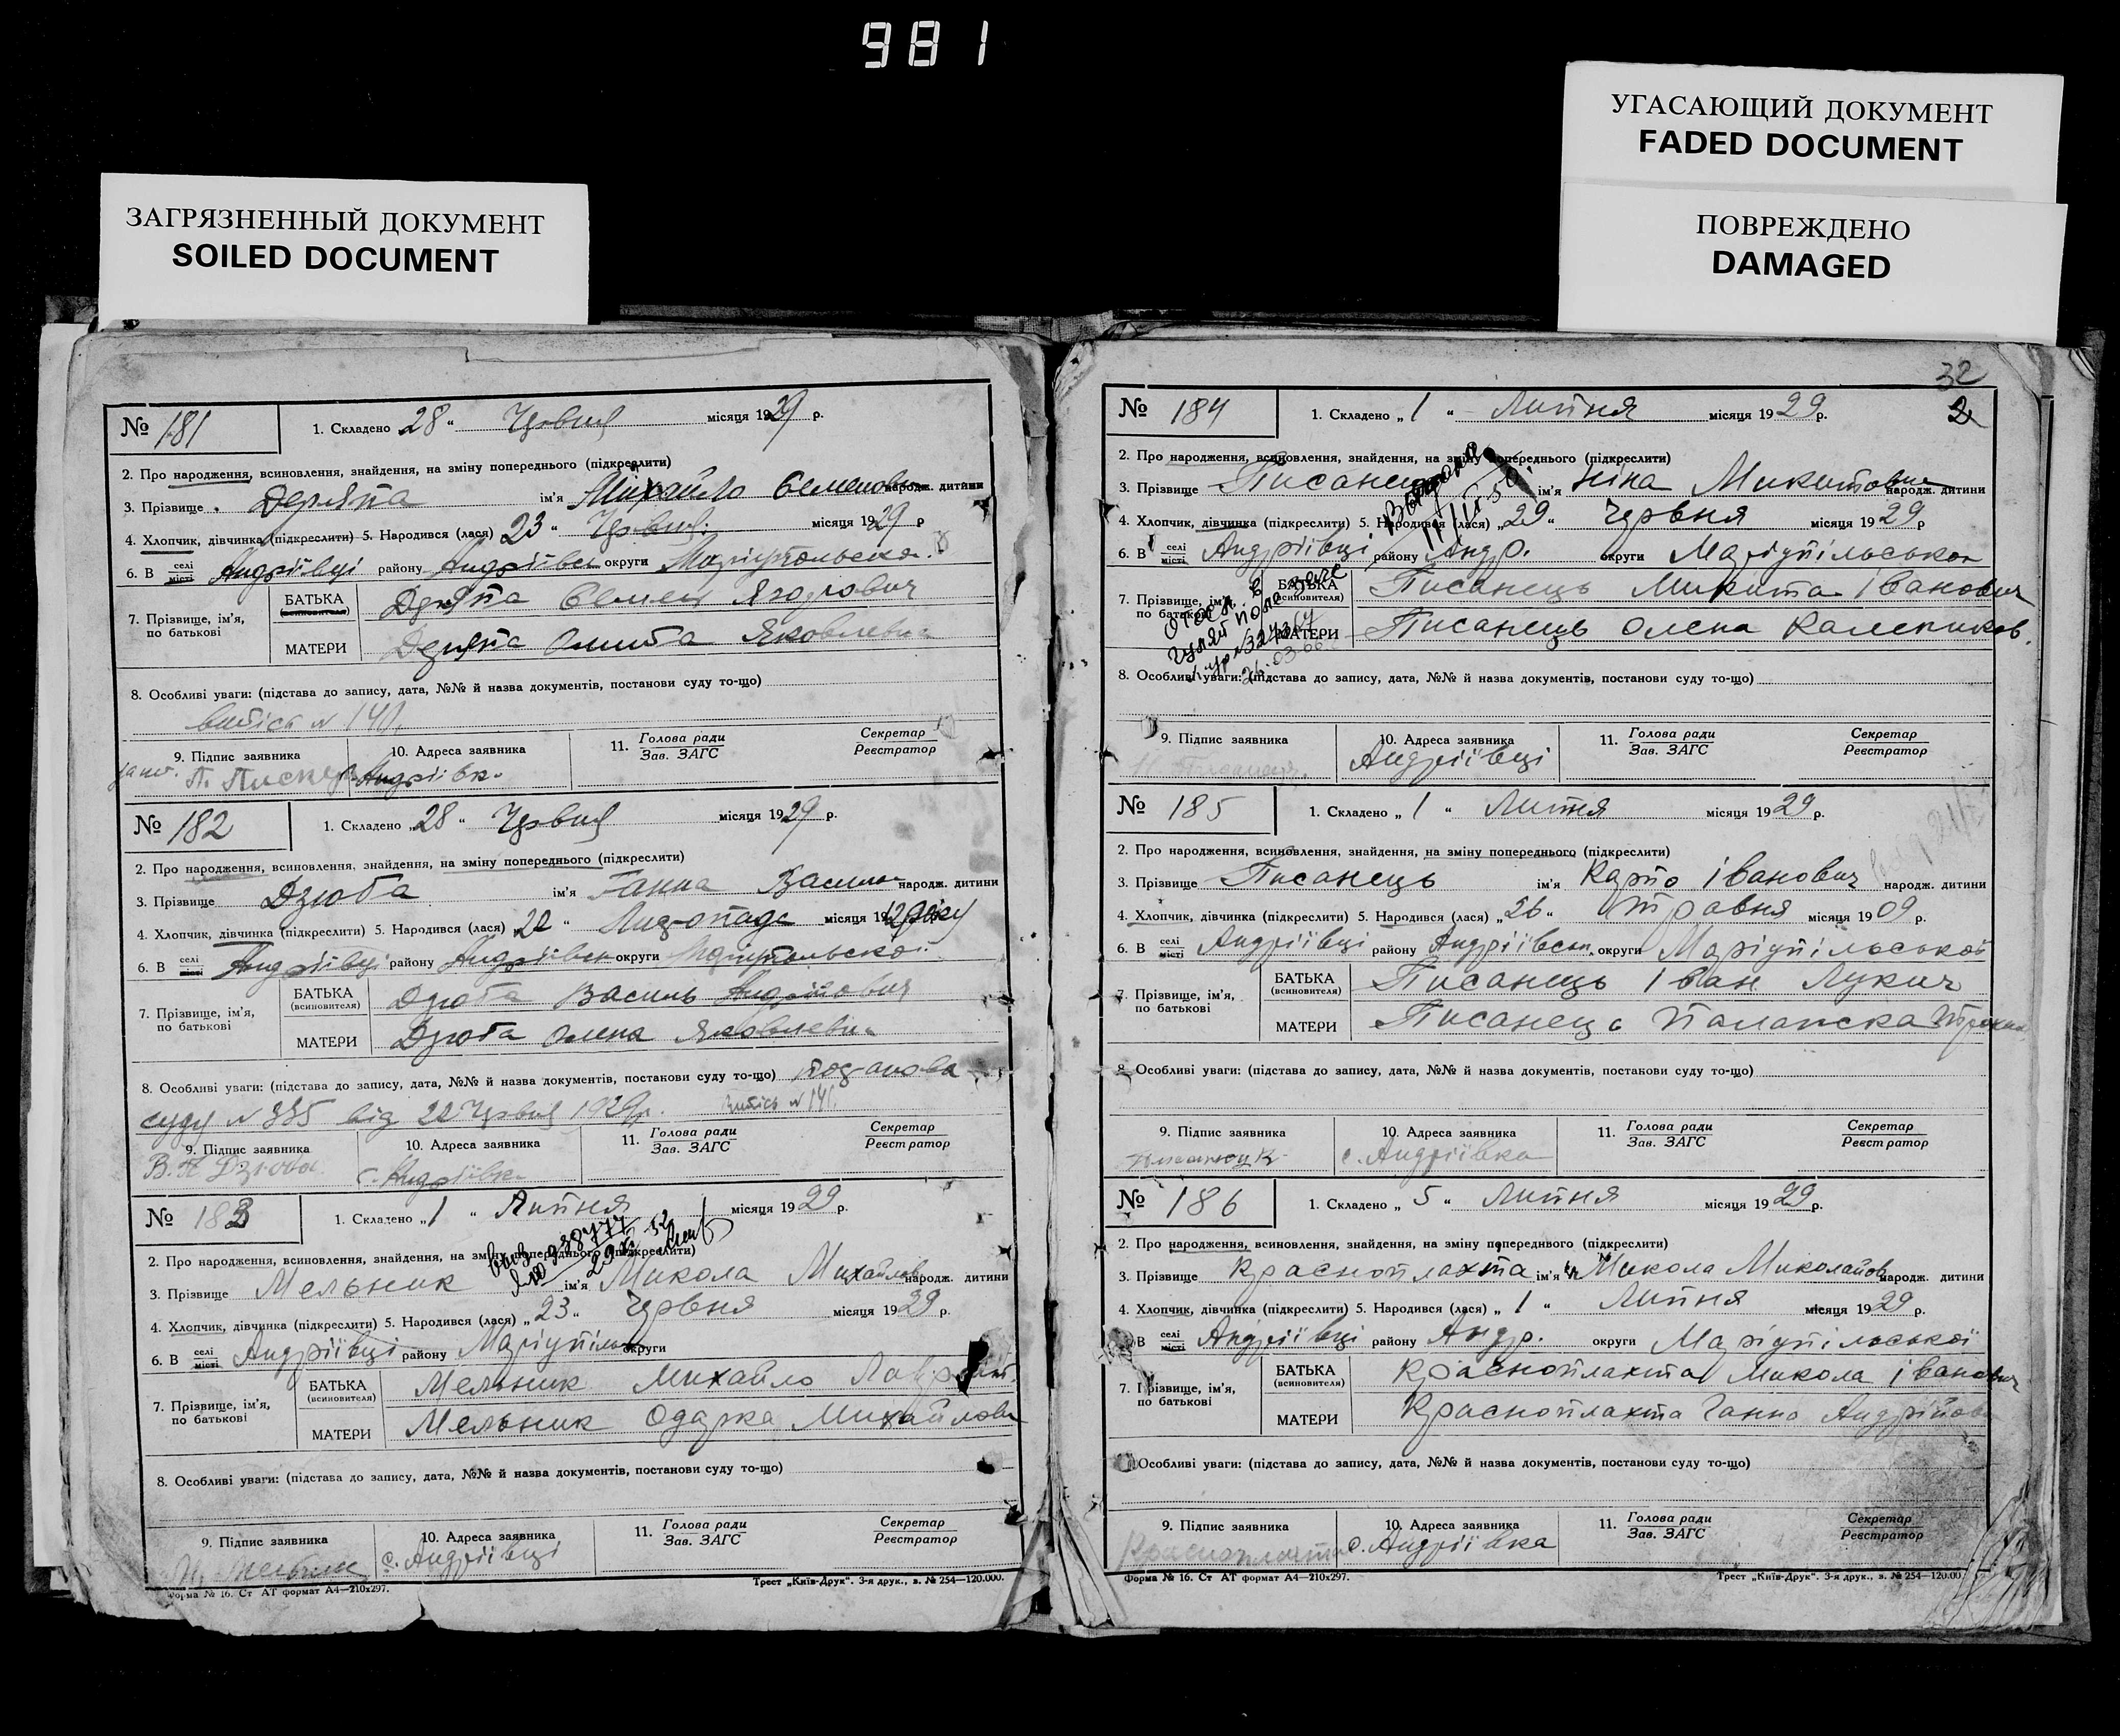 981
УГАСАЮЩИЙ ДОКУМЕНТ
FADED DOCUMENT
ПОВРЕЖДЕНО
DAMAGED
ЗАГРЯЗНЕННЫЙ ДОКУМЕНТ
SOILED DOCUMENT
№ 181 1. Складено 28 " Червня місяця 1929 р.
2. Про народження, всиновлення, знайдення, на зміну попереднього (підкреслити)
3. Прізвище ім'я Михайло Семенови народж. дитини
4. Хлопчик, дівчинка (підкреслити) 5. Народився (лася) 23 " Червня місяця 1929 р
6. В селі місті Андріївці району Андріївськ округи Маріупольська
7. Прізвище, ім'я, по батькові БАТЬКА (всиновителя) Семен
МАТЕРИ Яковлевна
8. Особливі уваги: (підстава до запису, дата, №№ й назва документів, постанови суду то-що)
витіск № 141
9. Підпис заявника 10. Адреса заявника 11. Голова ради Зав. ЗАГС Секретар Реєстратор
Андріївк.
№ 182 1. Складено 28 " Червня місяця 1929 р.
2. Про народження, всиновлення, знайдення, на зміну попереднього (підкреслити)
3. Прізвище Дзюба ім'я Ганна Василь народж. дитини
4. Хлопчик, дівчинка (підкреслити) 5. Народився (лася) 22 " Листопада місяця 19
6. В селі місті Андріївці району Андріївськ округи Маріупольської
7. Прізвище, ім'я, по батькові БАТЬКА (всиновителя) Дзюба Василь
МАТЕРИ Дзюба Олена Яковлевн
8. Особливі уваги: (підстава до запису, дата, №№ й назва документів, постанови суду то-що)
суду № 335 від 22 Червня 1929 р. витіск № 141
9. Підпис заявника 10. Адреса заявника 11. Голова ради Зав. ЗАГС Секретар Реєстратор
Дзюба с. Андріївк
№ 183 1. Складено „ 1 " Липня місяця 1929 р.
2. Про народження, всиновлення, знайдення, на зміну попереднього (підкреслити)
3. Прізвище Мельник ім'я Микола Михайлов народж. дитини
4. Хлопчик, дівчинка (підкреслити) 5. Народився (лася) „ 23 " Червня місяця 1929 р.
6. В селі місті Андріївці району Маріупіль округи
7. Прізвище, ім'я, по батькові БАТЬКА (всиновителя) Мельник Михайло
МАТЕРИ Мельник Одарка Михайлови
8. Особливі уваги: (підстава до запису, дата, №№ й назва документів, постанови суду то-що)
9. Підпис заявника 10. Адреса заявника 11. Голова ради Зав. ЗАГС Секретар Реєстратор
с. Андріївці
Форма № 16. Ст АТ формат А4—210х297. Трест „Київ-Друк". 3-я друк., з. № 254—120.000.
32
2
№ 184 1. Складено „ 1 " Липня місяця 1929 р.
2. Про народження, всиновлення, знайдення, на зміну попереднього (підкреслити)
3. Прізвище Писанець ім'я Ніна Микитовна народж. дитини
4. Хлопчик, дівчинка (підкреслити) 5. Народився (лася) „ 29 " Червня місяця 1929 р
6. В селі місті Андріївці району Андр. округи Маріупільської
7. Прізвище, ім'я, по батькові БАТЬКА (всиновителя) Писанець Микита Іванович
МАТЕРИ Писанець Олена
8. Особливі уваги: (підстава до запису, дата, №№ й назва документів, постанови суду то-що)
9. Підпис заявника 10. Адреса заявника 11. Голова ради Зав. ЗАГС Секретар Реєстратор
Андріївці
№ 185 1. Складено „ 1 " Липня місяця 1929 р.
2. Про народження, всиновлення, знайдення, на зміну попереднього (підкреслити)
3. Прізвище Писанець ім'я Карпо Іванович народж. дитини
4. Хлопчик, дівчинка (підкреслити) 5. Народився (лася) „ 26 " Травня місяця 1909 р.
6. В селі місті Андріївці району Андріївськ. округи Маріупільської
7. Прізвище, ім'я, по батькові БАТЬКА (всиновителя) Писанець Іван Лукич
МАТЕРИ Писанець
8. Особливі уваги: (підстава до запису, дата, №№ й назва документів, постанови суду то-що)
9. Підпис заявника 10. Адреса заявника 11. Голова ради Зав. ЗАГС Секретар Реєстратор
с. Андріївка
№ 186 1. Складено „ 5 " Липня місяця 1929 р.
2. Про народження, всиновлення, знайдення, на зміну попереднього (підкреслити)
3. Прізвище Красноплахта ім'я Микола Миколайов народж. дитини
4. Хлопчик, дівчинка (підкреслити) 5. Народився (лася) „ 1 " Липня місяця 1929 р.
6. В селі місті Андріївці району Андр. округи Маріупільської
7. Прізвище, ім'я, по батькові БАТЬКА (всиновителя) Красноплахта Микола Іванович
МАТЕРИ Красноплахта Ганна Андрійов
8. Особливі уваги: (підстава до запису, дата, №№ й назва документів, постанови суду то-що)
9. Підпис заявника 10. Адреса заявника 11. Голова ради Зав. ЗАГС Секретар Реєстратор
Красноплахта с. Андріївка
Форма № 16. Ст АТ формат А4—210х297. Трест „Київ-Друк". 3-я друк., з. № 254—120.00